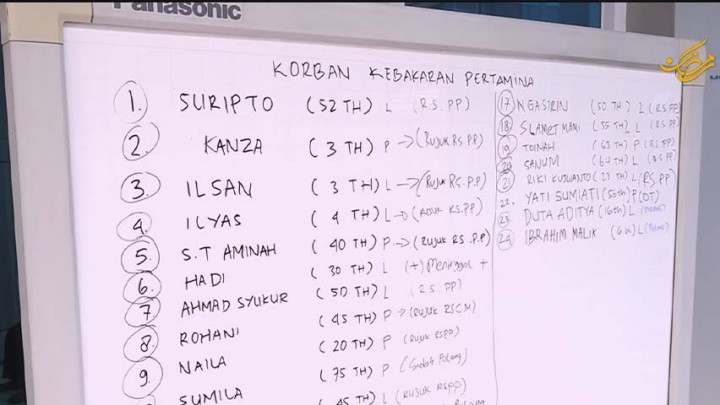 Panasonic
KORBAN KEBAKARAN PERTAMINA
1. SURIPTO (52 TH) L (RS.PP)
2. KANZA (3 TH) P → (Rujuk RS.PP)
3. ILSAN (3 TH) L → (Rujuk RS.PP)
4. ILYAS (4 TH) L → (RUJUK RS.PP)
5. S.T AMINAH (40 TH) P → (RUJUK RS.P.P)
6. HADI (30 TH) L (+) Meninggal +
7. AHMAD SYUKUR (50 TH) L (RS PP)
8. ROHANI (45 TH) P → (RUJUK RSCM)
9. NAILA (20 TH) P (RUJUK RSPP)
SUMILA (75 TH) P (Sudah Pulang)
(45 TH) L (RUJUK RSPP)
17 NGASIRIN (50 TH) L (RS PP)
18 SLAMET (55 TH) L (RS PP)
19 TOINAH (63 TH) P (RS PP)
20 SANUM (64 TH) L (RS PP)
21 RIKI KUSWANTO (23 TH) L (RS PP)
22. YATI SUMIATI (50TH) P (OT)
23. DUTA ADITYA (16TH) L
24 IBRAHIM MALIK L (Pulang)